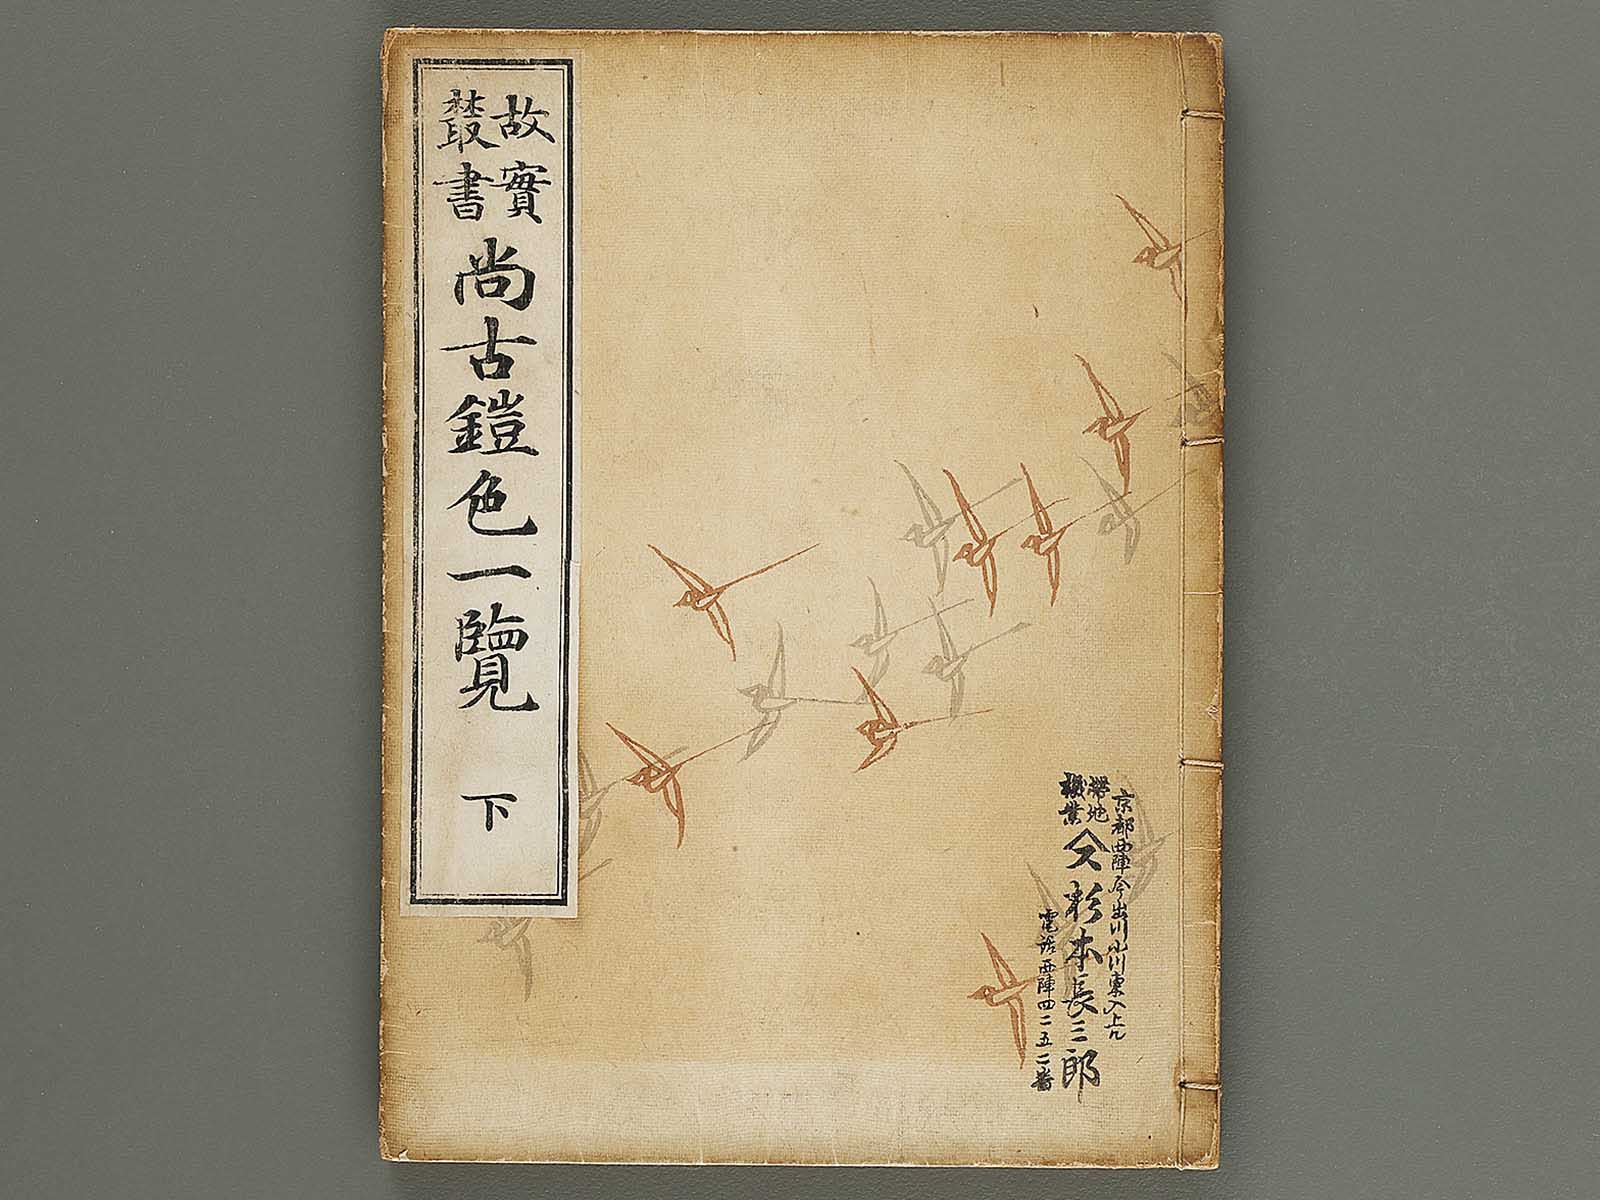 故實
叢書
尚古鎧色一覽 下
京都西陣今出川小川東入上ル
帶地
機業
杉本長三郎
電話西陣四二五二番